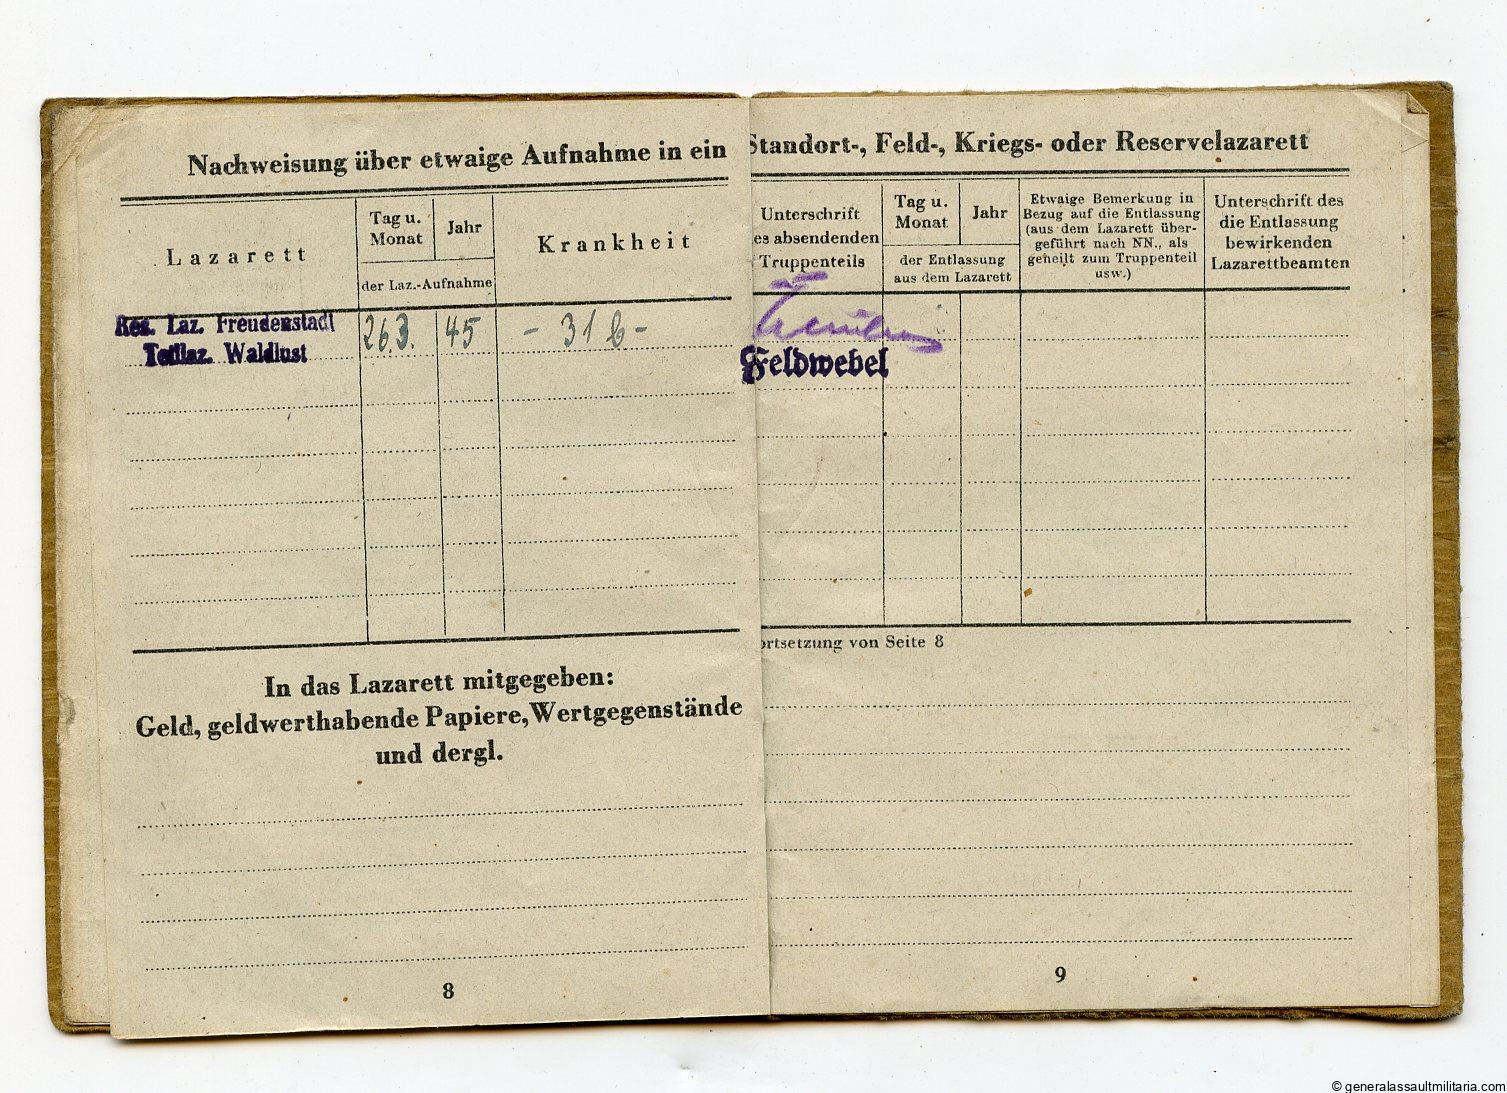 Nachweisung über etwaige Aufnahme in ein
Lazarett
Tag u.
Monat
Jahr
der Laz.-Aufnahme
Krankheit
Res. Laz. Freudenstadt
Teillaz. Waldlust
26.3. 45 - 31 b -
In das Lazarett mitgegeben:
Geld, geldwerthabende Papiere, Wertgegenstände
und dergl.
8
Standort-, Feld-, Kriegs- oder Reservelazarett
Unterschrift
es absendenden
Truppenteils
Tag u.
Monat
Jahr
der Entlassung
aus dem Lazarett
Etwaige Bemerkung in
Bezug auf die Entlassung
(aus dem Lazarett über-
geführt nach NN., als
geheilt zum Truppenteil
usw.)
Unterschrift des
die Entlassung
bewirkenden
Lazarettbeamten
Feldwebel
ortsetzung von Seite 8
9
© generalassaultmilitaria.com